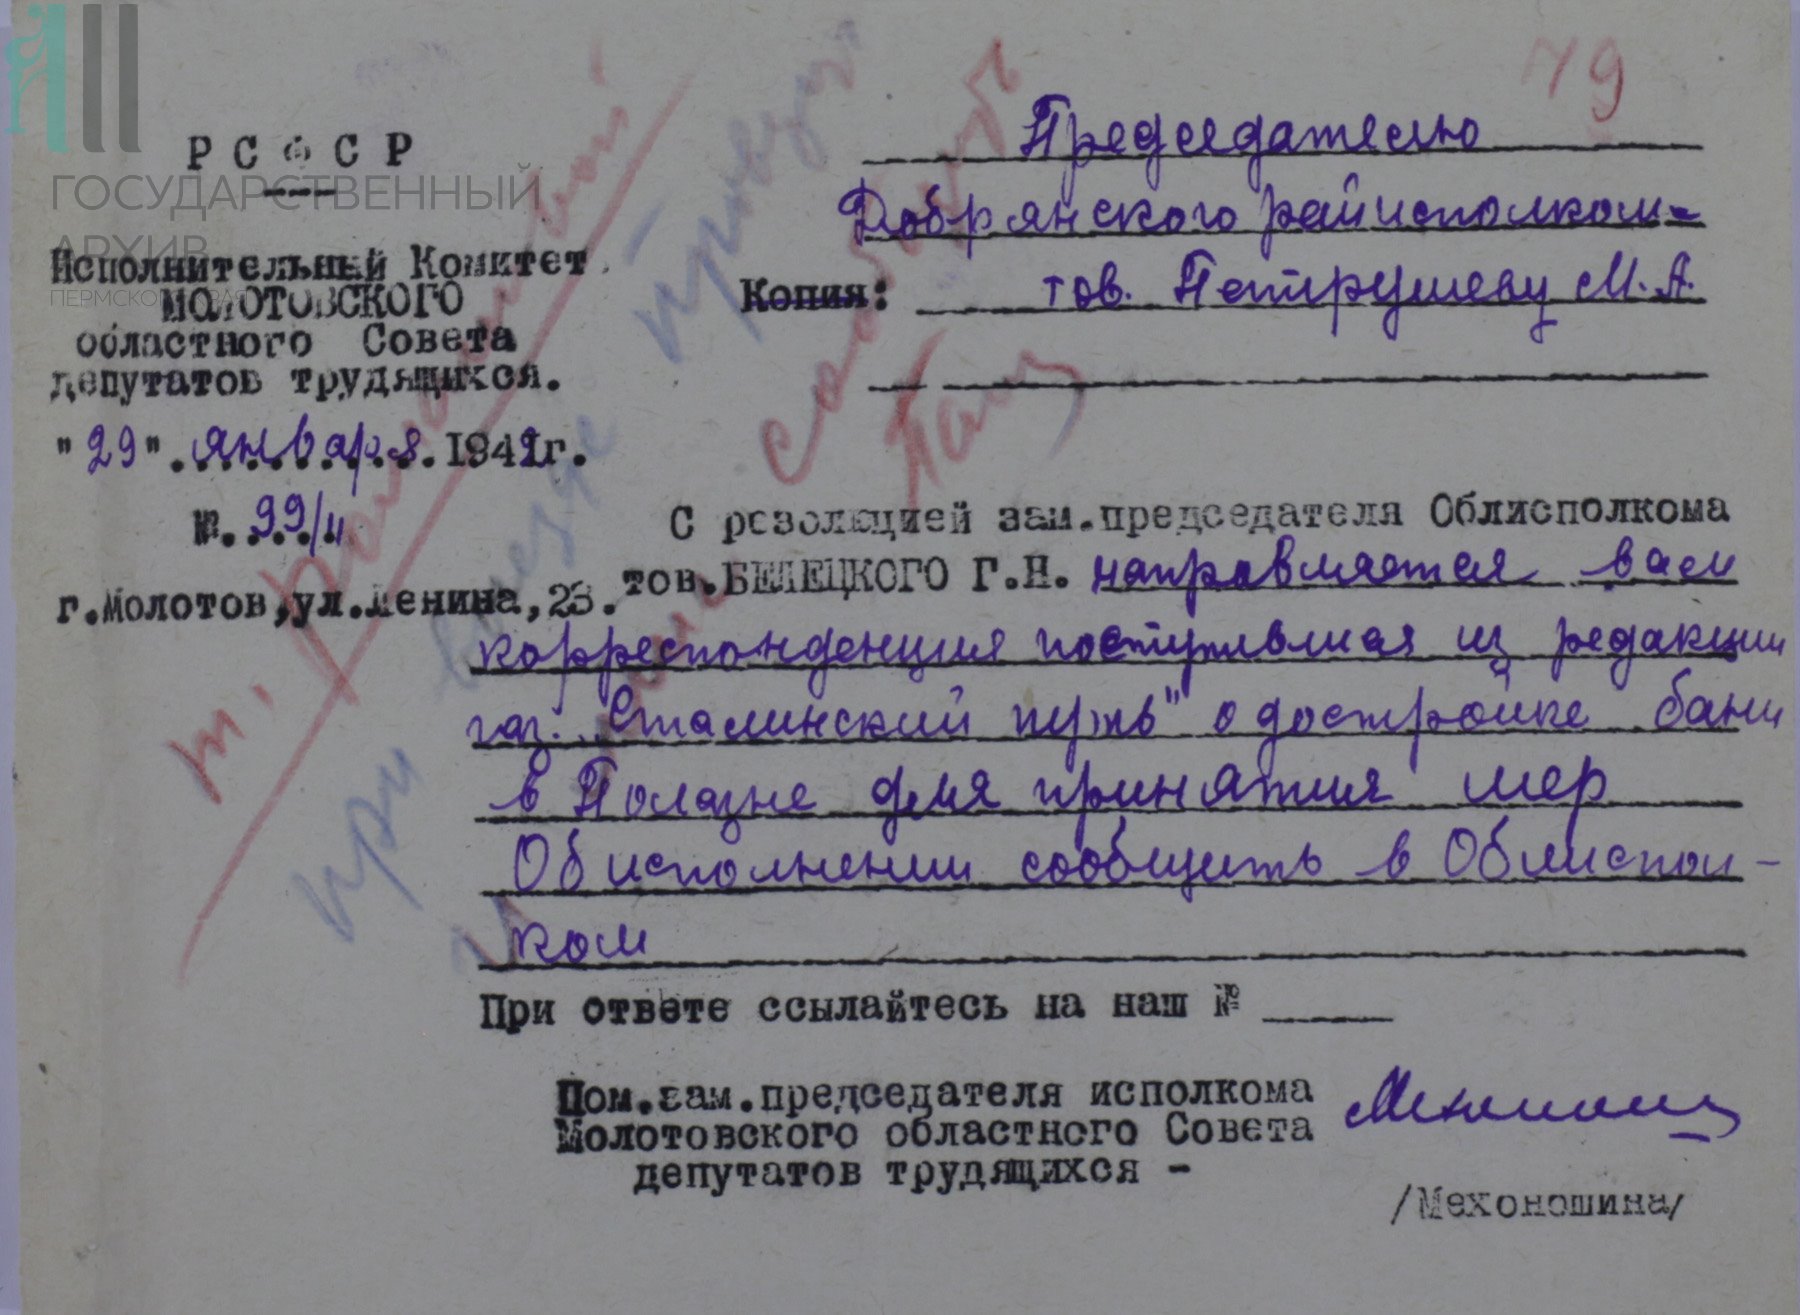 79
РСФСР
ГОСУДАРСТВЕННЫЙ
АРХИВ
Исполнительный Комитет
МОЛОТОВСКОГО
областного Совета
депутатов трудящихся.
"29".января.1942г.
№.99/и
г.Молотов,ул.Ленина,23.
Председателю
Добрянского райисполкома
Копия: тов. Петрушеву М.А.
С резолюцией зам.председателя Облисполкома
тов.БЕЛЕЦКОГО Г.Н. направляется вам
корреспонденция поступившая из редакции
газ. „Сталинский путь" о достройке бани
в Полазне для принятия мер
Об исполнении сообщить в Облиспол-
ком
При ответе ссылайтесь на наш №
Пом.зам.председателя исполкома
Молотовского областного Совета
депутатов трудящихся -
/Мехоношина/